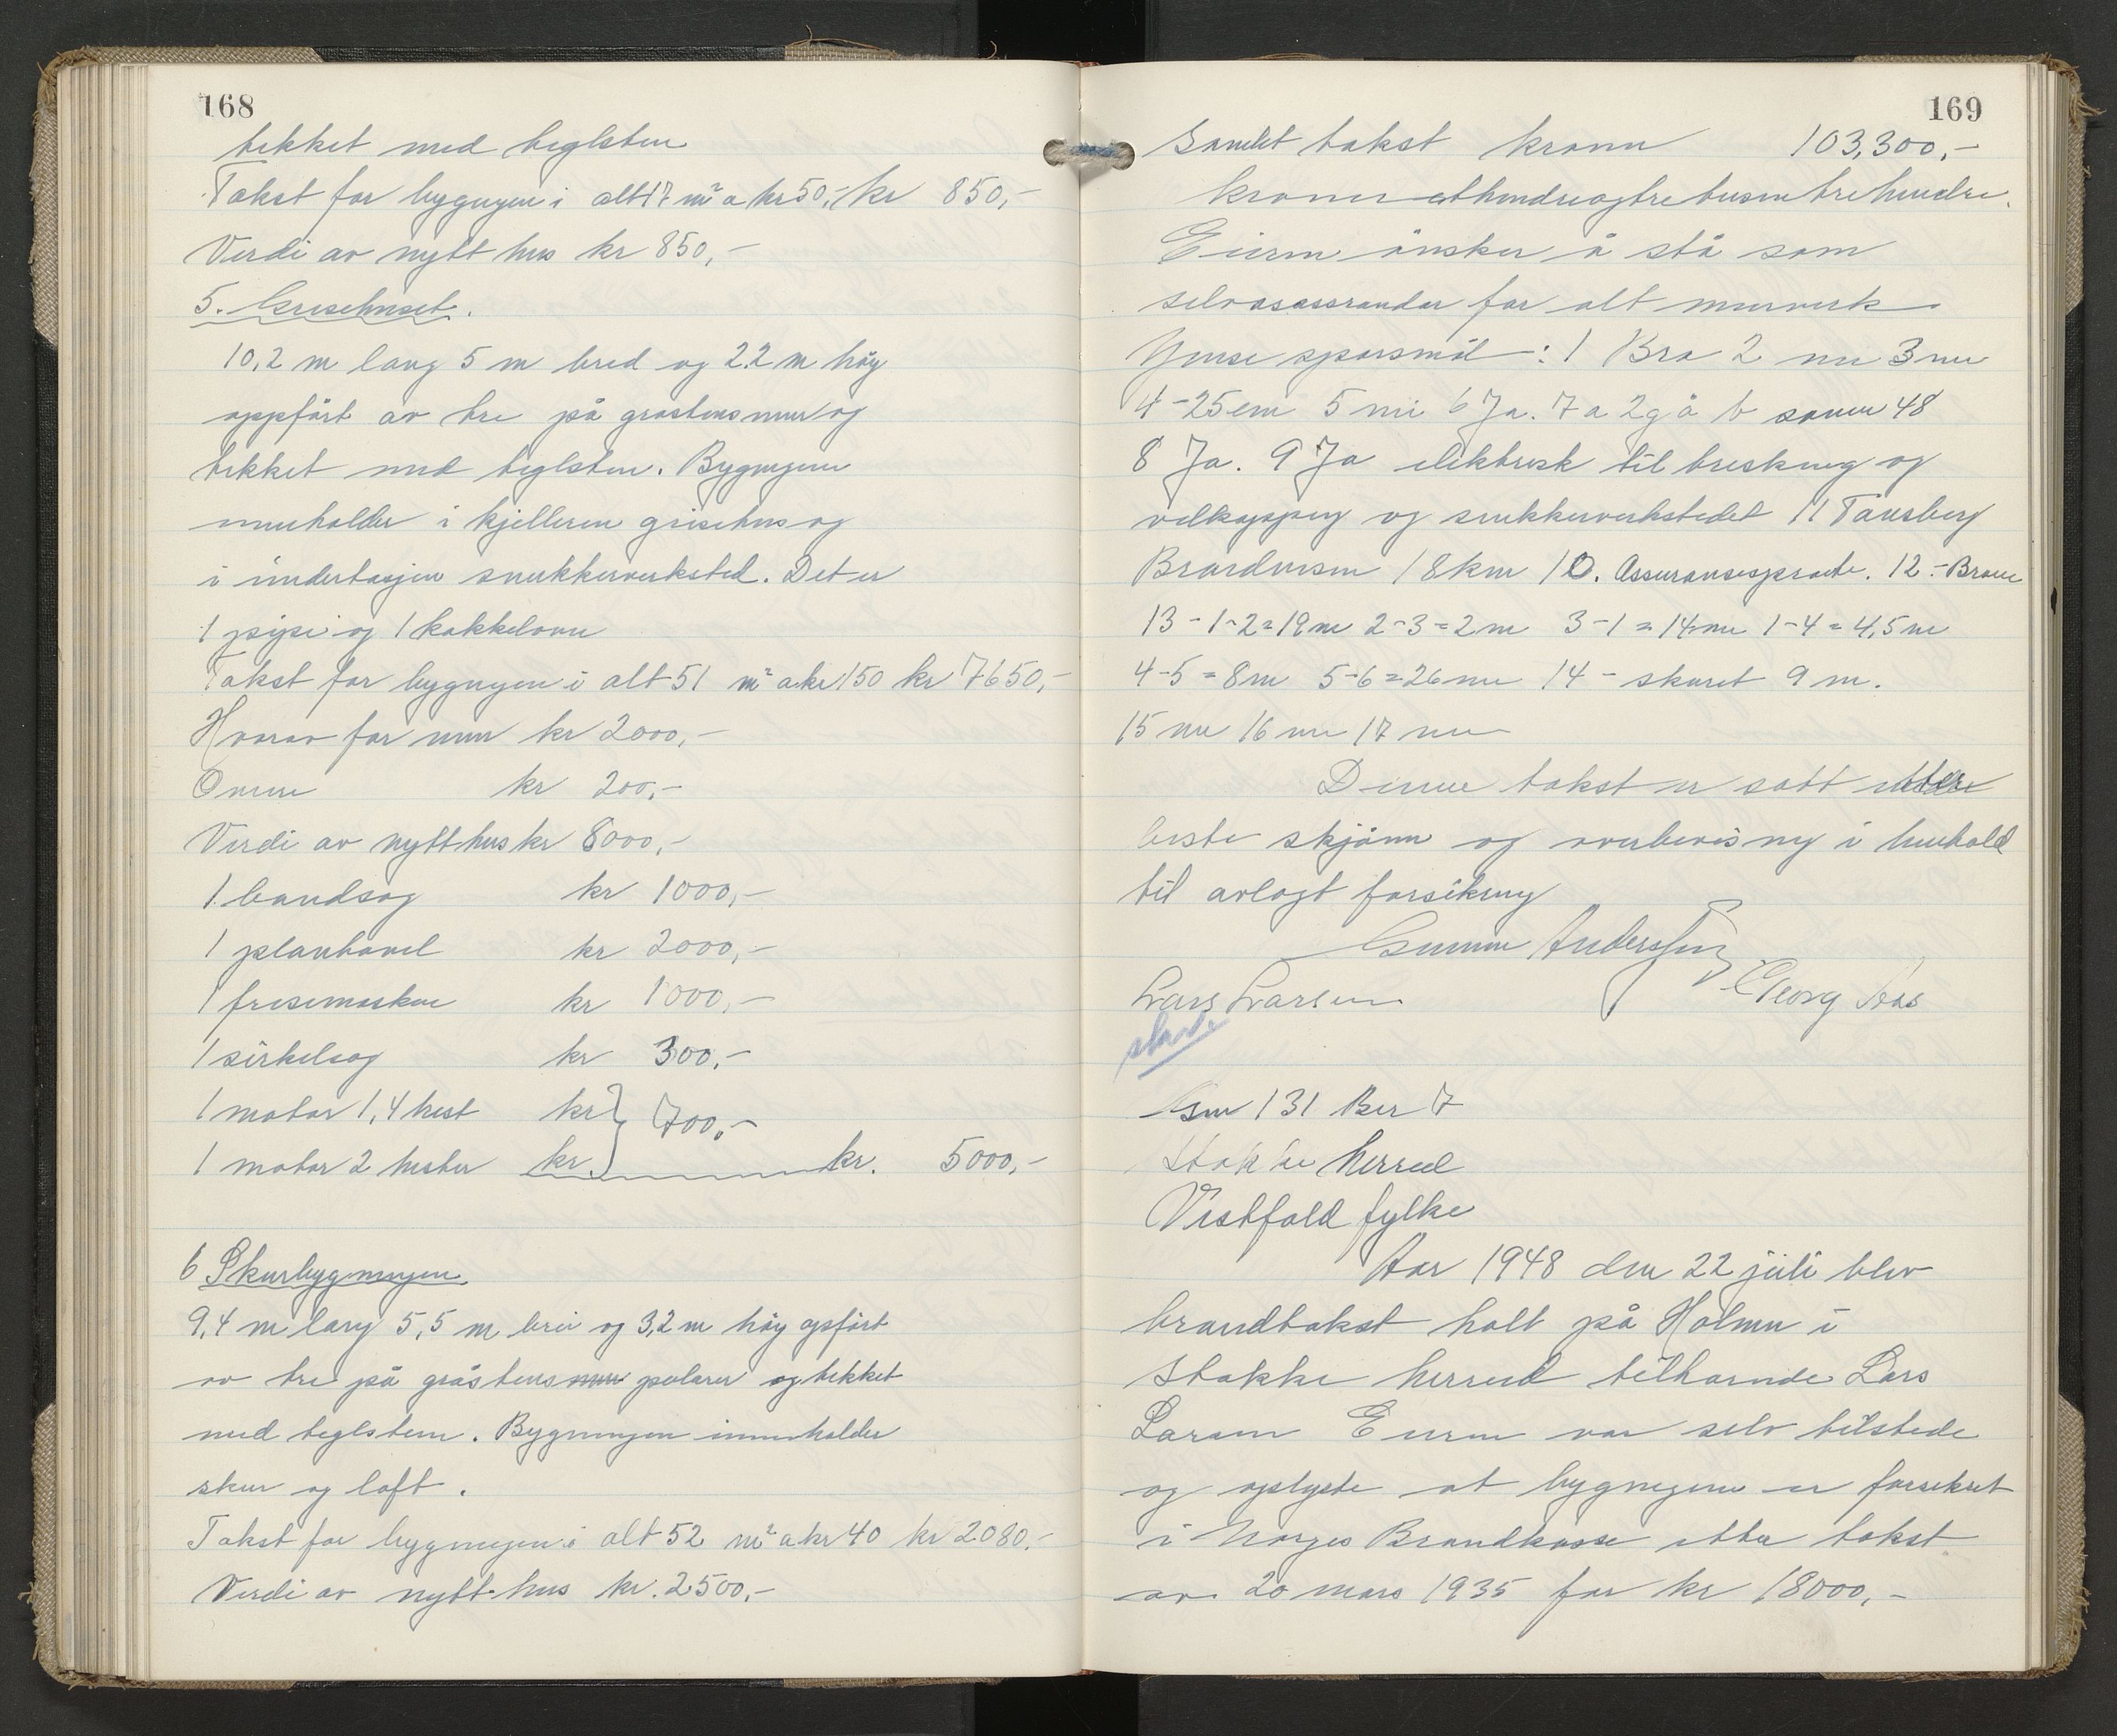 168
tekket med teglsten
Takst for bygngen i alt 17 m² a kr 50,- kr 850,-
Verdi av nytt hus kr 850,-
5. Grisehuset.
10,2 m lang 5 m bred og 2.2 m høg
oppført av tre på grastensmur og
tekket med teglsten. Bygngen
innholder i kjelleren grisehus og
i undertasjen snekkerverksted. Det er
1 pipe og 1 kakkelovn
Takst for bygngen i alt 51 m² a kr 150 kr 7650,-
Hvorav for mur kr 2000,-
Ovnn kr 200,-
Verdi av nytt hus kr 8000,-
1 bandsag kr 1000,-
1 planhøvel kr 2000,-
1 fresemaskin kr 1000,-
1 sirkelsag kr 300,-
1 motor 1,4 hest kr
1 motor 2 hester kr } 700,- kr. 5000,-
6 Skurbygningen
9,4 m lang 5,5 m brei og 3,2 m høg opført
av tre på gråstens mur pelarer og tekket
med teglsten. Bygningen innholder
skur og loft.
Takst for bygningen i alt 52 m² a kr 40 kr 2080.-
Verdi av nytt hus kr. 2500,-
169
Samlet takst kroner 103,300,-
kroner ethundreogtretusentrehundre.
Eieren ønsker å stå som
selvassurandør for alt murverk
Ymse spørsmål: 1 Bra 2 nei 3 nei
4-25 em 5 nei 6 Ja. 7 a 2 g å b samme 48
8 Ja. 9 Ja elektrisk til tresking og
vedkapping og snekkerverkstedet 11 Tønsberg
Brandvesen 18 km 10. Assuransesprøite. 12 - Brønn
13 - 1-2=19 m 2-3=2 m 3-1=14 m 1-4=4,5 m
4-5=8 m 5-6=26 m 14 - skuret 9 m.
15 nei 16 nei 17 nei
Denne takst er satt etter
beste skjønn og overbevisning i henhold
til avlagt forsikring
Gunnar Anderssen
Lars Larsen Georg Aas
Gnr 131 Bnr 7
Stokke herred
Vestfold fylke
Aar 1948 den 22 juli blev
brandtakst holt på Holmen i
Stokke herred tilhørende Lars
Larsen Eieren var selv tilstede
og oplyste at bygningene er forsikret
i Norges Brandkasse etter takst
av 20 mars 1935 for kr 18000,-